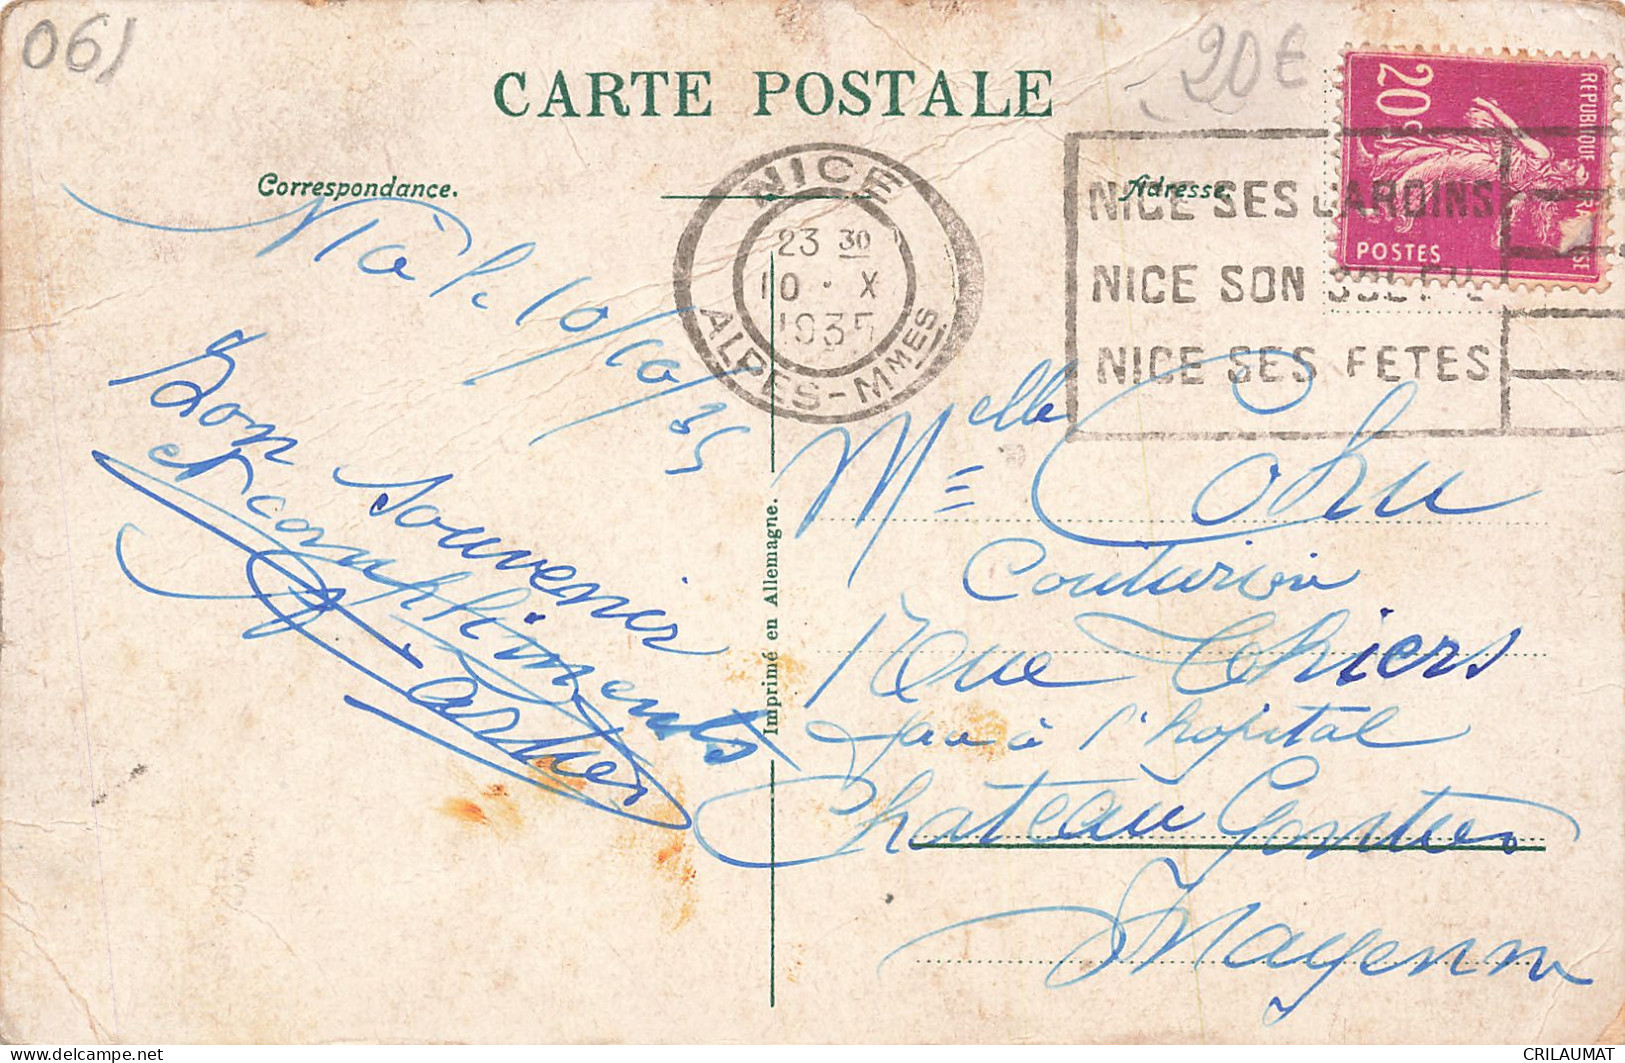 061
20€
CARTE POSTALE
Correspondance.
Adresse.
NICE
23 30
10 · X
1935
ALPES-MMES
NICE SES JARDINS
NICE SON SOLEIL
NICE SES FETES
20c
REPUBLIQUE FRANCAISE
POSTES
Nice le 10/10/35
Bon souvenir
et compliments
Imprimé en Allemagne.
Melle Cohu
Couturière
Rue Thiers
à l'hopital
Chateau Gontier
Mayenne
delcampe.net
CRILAUMAT